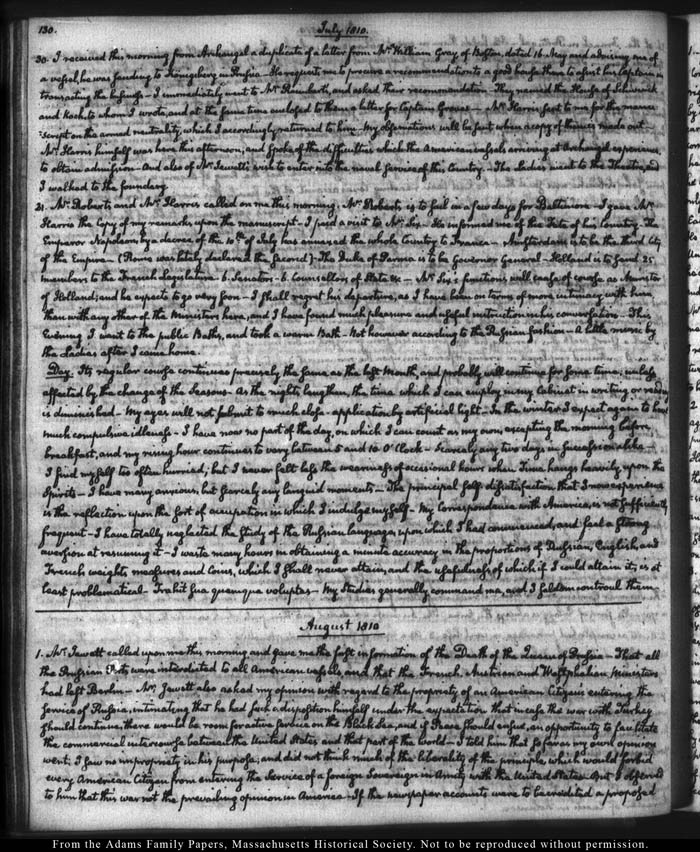 130.
July 1810.
30. I received this morning from Archangel a duplicate of a letter from Mr William Gray of Boston, dated 16. May and advising me of
a vessel, he was sending to Konigsberg in Prussia. He requests me to procure a recommendation to a good house there to assist his Captain in
transacting the business. I immediately went to Mr and asked their recommendation. They named the House of
and Koch, to whom I wrote, and at the same time enclosed to them a letter for Captain Graves. Mr Harris sent to me for the manu-
-script on the armed neutrality, which I accordingly returned to him. My observations will be sent when a copy of them is made out.
Mr Harris himself was here this afternoon; and spoke of the difficulties which the American vessels arriving at Archangel experience,
to obtain admission. And also of Mr Jewett's wish to enter into the naval service of this Country. The Ladies went to the Theatre, and
I walked to the foundery.
31. Mr Roberts and Mr Harris called on me this morning. Mr Roberts is to sail in a few days for Baltimore. I gave Mr
Harris the Copy of my remarks upon the manuscript. I paid a visit to Mr Six. He informed me of the Fate of his Country. The
Emperor Napoleon, by a decree of the 10th of July has annexed the whole Country to France. Amsterdam is to be the third City
of the Empire. (Rome was lately declared the second). The Duke of Parma is to be Governor General. Holland is to send 25
members to the French Legislature. 6. Senators. 6. Counsellors of State &c. Mr Six's functions will cease of course as Minister
of Holland; and he expects to go very soon. I shall regret his departure, as I have been on terms of more intimacy with him,
than with any other of the Ministers here, and I have found much pleasure and useful instruction in his conversation. This
Evening I went to the public Baths, and took a warm Bath. Not however according to the Russian fashion. A little music by
the Ladies after I came home.
Day. Its regular course continues precisely the same as the last Month, and probably will continue for some time; unless
affected by the change of the Seasons. As the nights lengthen, the time which I can employ in my Cabinet in writing or reading
is diminished. My eyes will not submit to much close application by artificial light. In the winter I expect again to have
much compulsive idleness. I have now no part of the day, on which I can count as my own, excepting the morning before
breakfast, and my rising hour continues to vary between 5 and 10 O'Clock. Scarcely any two days in succession alike.
I find myself too often hurried; but I never felt less the weariness of occasional hours when Time hangs heavily upon the
Spirits. I have many anxious, but scarcely any languid moments. The principal self-dissatisfaction that I now experience
is the reflection upon the sort of occupation in which I indulge myself. My Correspondence with America, is not sufficiently
frequent. I have totally neglected the Study of the Russian language, upon which I had commenced, and feel a strong
aversion at resuming it. I waste many hours in obtaining a minute accuracy in the proportions of Russian, English, and
French weights, measures and Coins, which I shall never attain, and the usefulness of which if I could attain it, is at
least problematical. Trahit sua quemque voluptas. My Studies generally command me, and I seldom controul them.
August 1810
1. Mr Jewett called upon me this morning and gave me the first information of the Death of the Queen of Prussia. That all
the Prussian Ports were interdicted to all American vessels, and that the French, Austrian and Westphalian Ministers
had left Berlin. Mr Jewett also asked my opinion with regard to the propriety of an American Citizen's entering the
service of Russia, intimating that he had such a disposition himself under the expectation that in case the war with Turkey
should continue, there would be room for active service on the Black Sea, and if Peace should ensue, an opportunity to facilitate
the commercial intercourse between the United States and that part of the world. I told him that so far as my own opinion
went, I saw no impropriety in his purpose; and did not think much of the liberality of the principle, which would forbid
every American Citizen from entering the Service of a foreign Sovereign in Amity with the United States. But I observed
to him that this was not the prevailing opinion in America. If the newspaper accounts were to be credited a proposed
From the Adams Family Papers, Massachusetts Historical Society. Not to be reproduced without permission.